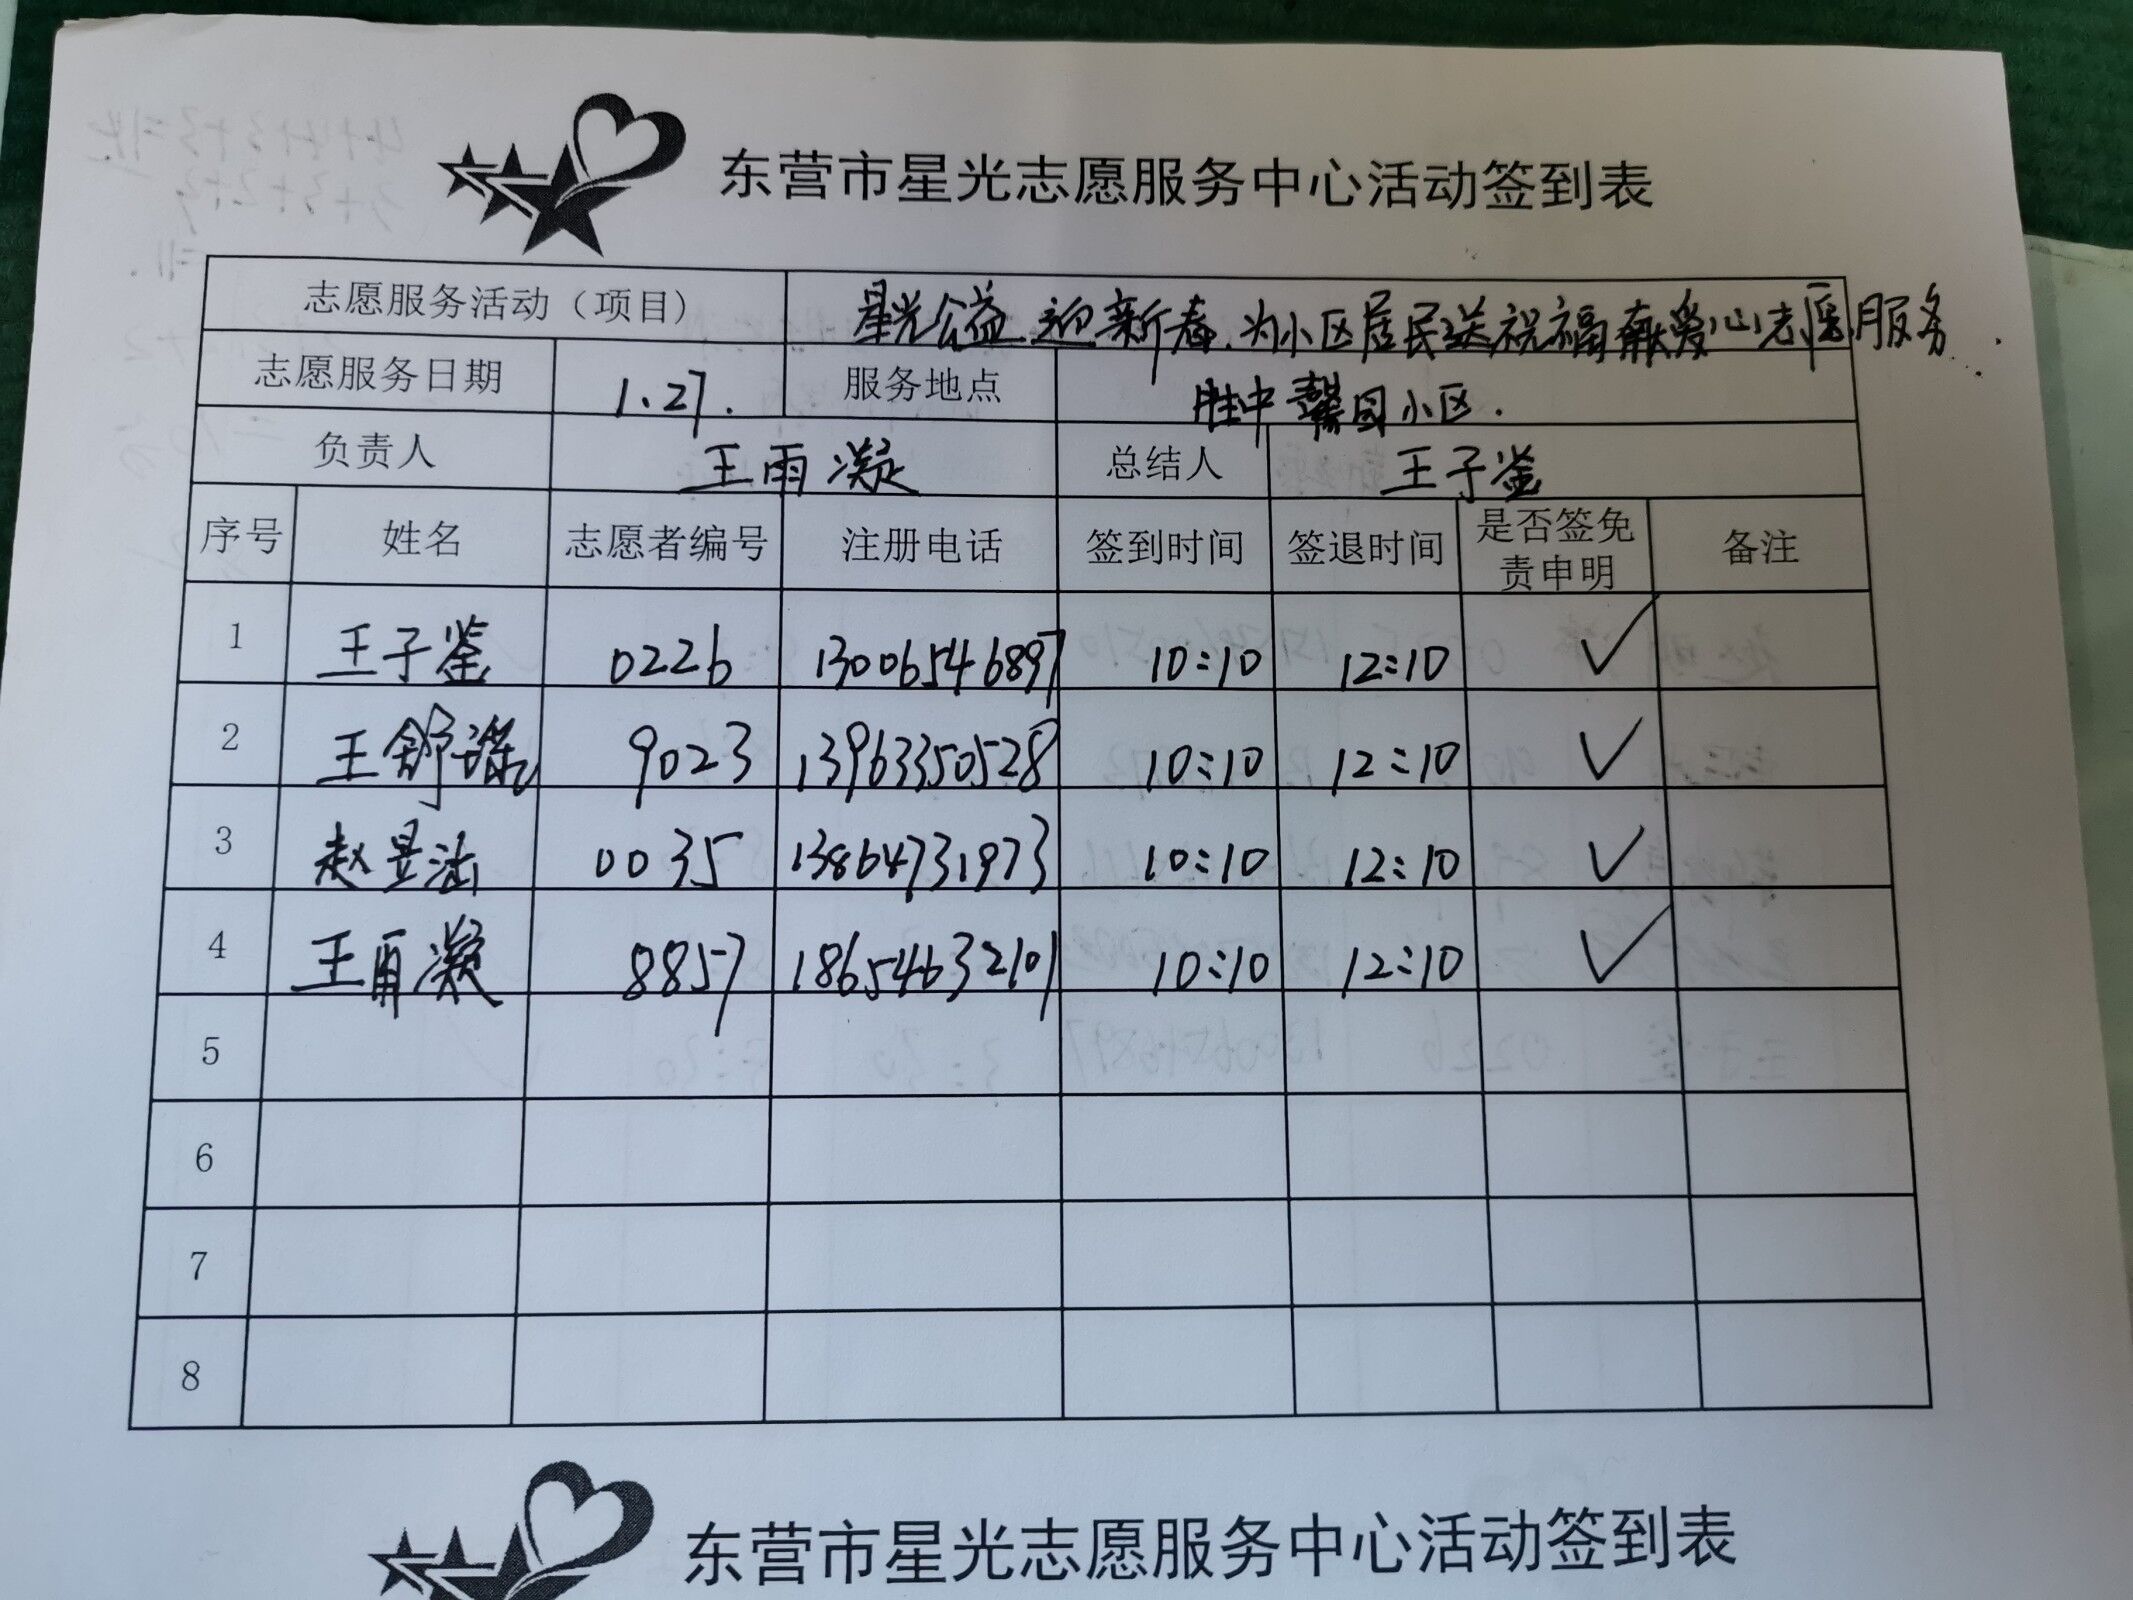 东营市星光志愿服务中心活动签到表
志愿服务活动（项目） 星光公益 迎新春.为小区居民送祝福献爱心志愿服务.
志愿服务日期 1.27. 服务地点 胜中馨园小区.
负责人 王雨凝 总结人 王子鉴
序号 姓名 志愿者编号 注册电话 签到时间 签退时间 是否签免责申明 备注
1 王子鉴 0226 13006546897 10:10 12:10 ✓
2 王舒 9023 13963350528 10:10 12:10 ✓
3 赵昱涵 0035 13864731973 10:10 12:10 ✓
4 王雨凝 8857 18654632101 10:10 12:10 ✓
5
6
7
8
东营市星光志愿服务中心活动签到表